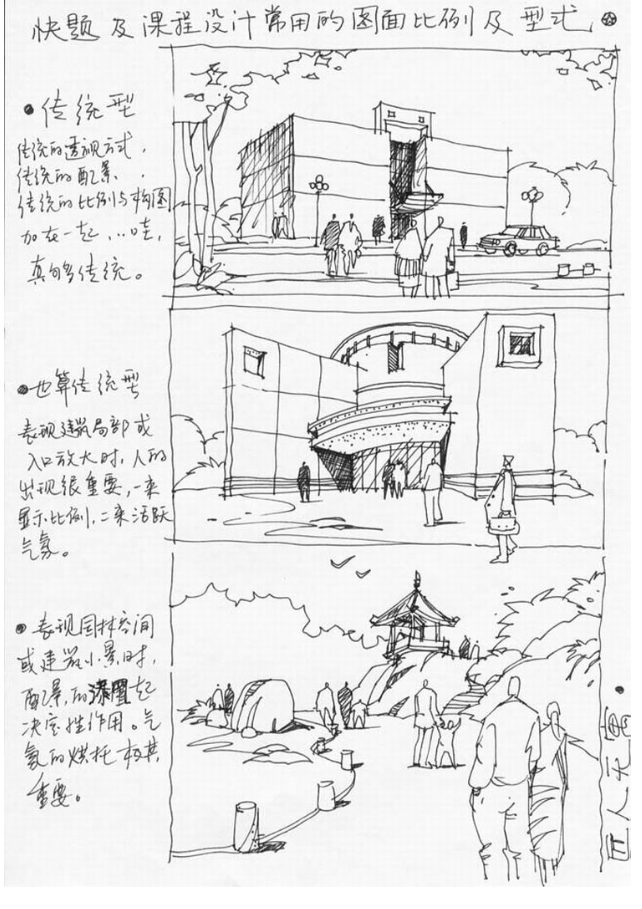 快题及课程设计常用的图面比例及型式
●传统型
传统的透视方式，
传统的配景，
传统的比例与构图
加在一起，...哇，
真的够传统。
●也算传统型
表现建筑局部或
入口放大时，人的
出现很重要，一来
显示比例，二来活跃
气氛。
●表现园林空间
或建筑小景时，
配景的深置起
决定性作用。气
氛的烘托极其
重要。